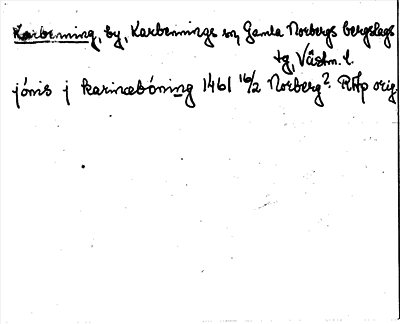 Karbenning, by, Karbennings sn, Gamla Norbergs bergslags
tg, Västm. l.
jónis j karinæbóning 1461 16/2 Norberg? RAp orig.